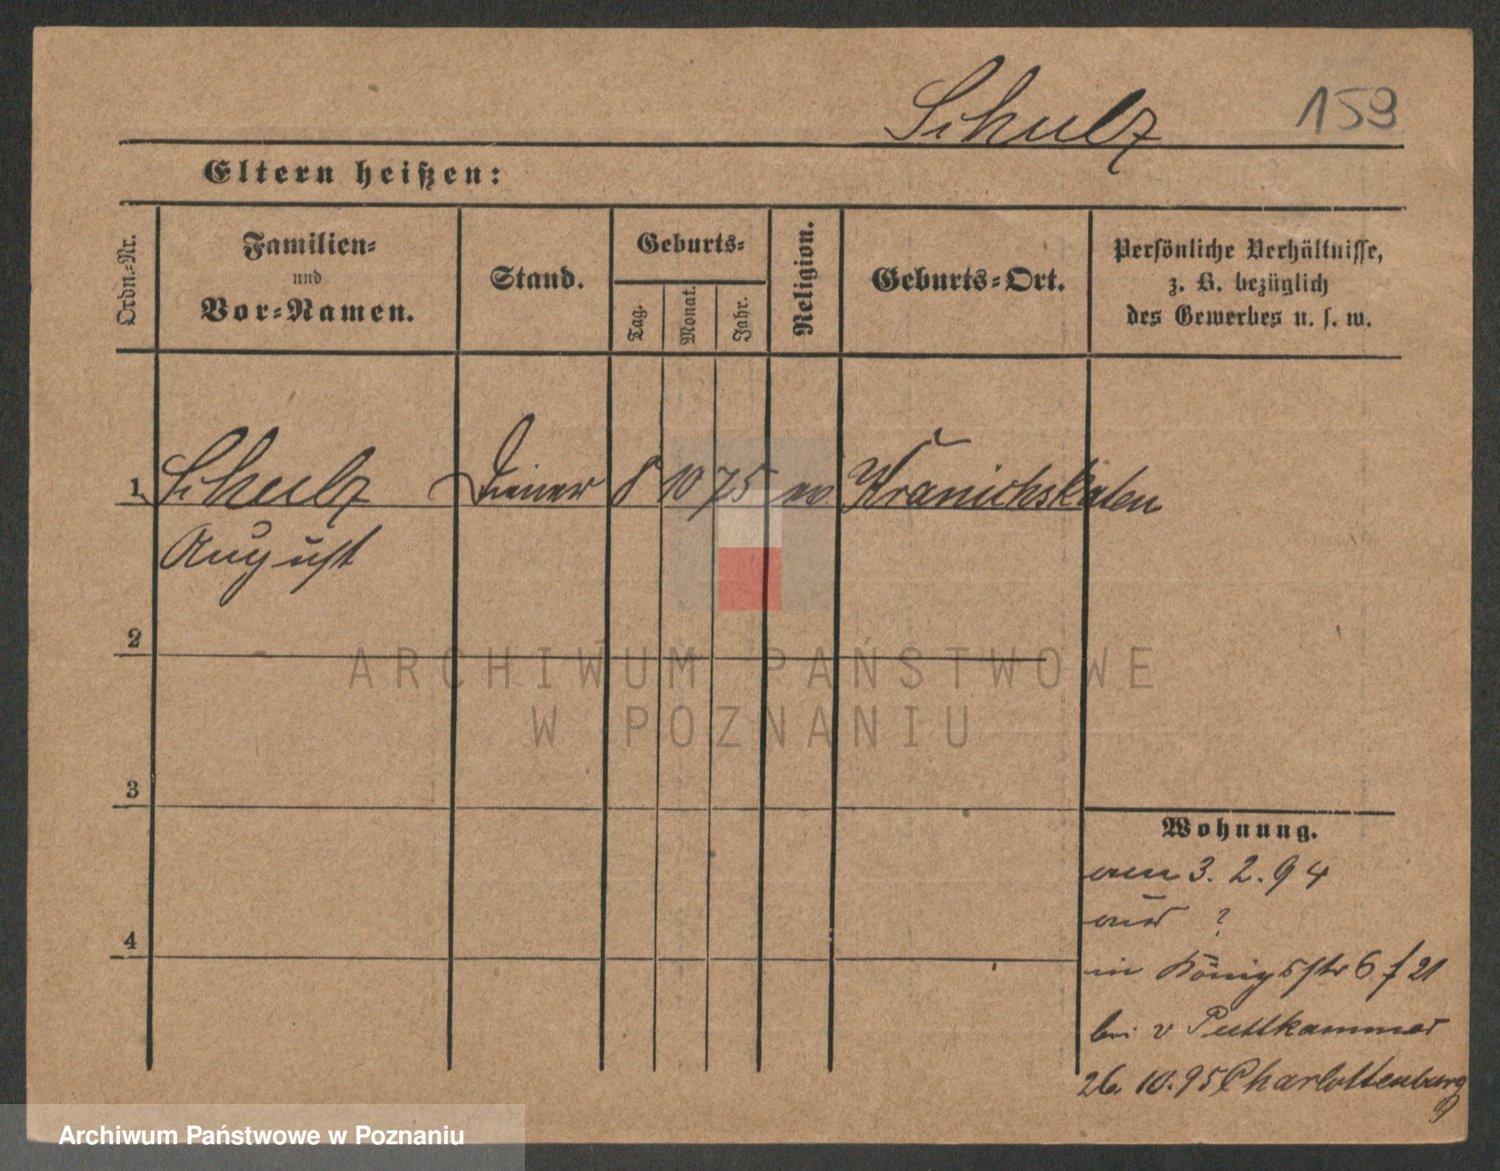 Schulz 159
Eltern heißen:
Ordn.-Nr.
Familien-
und
Vor-Namen.
Stand.
Geburts-
Tag.
Monat.
Jahr.
Religion.
Geburts-Ort.
Persönliche Verhältnisse,
z. B. bezüglich
des Gewerbes u. s. w.
1 Schulz Diener 8 10 75 ev. Kranichskaten
August
2
ARCHIWUM PAŃSTWOWE
W POZNANIU
3
Wohnung.
am 3. 2. 94
aus ?
4
in Königsstr 6 f 21
bei v Puttkammer
26. 10. 95 Charlottenburg
Archiwum Państwowe w Poznaniu